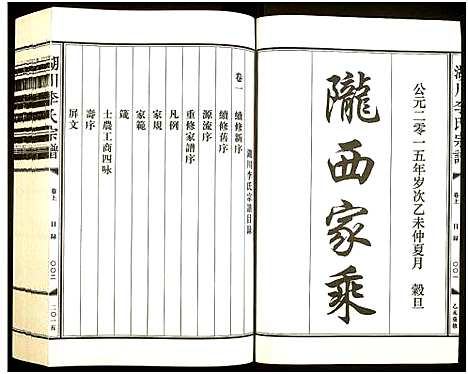 湖川李氏宗譜
卷上
目録
〇〇一
乙未重修
公元二零一五年岁次乙未仲夏月 穀旦
隴西家乘
湖川李氏宗譜目録
卷一
續修新序
續修舊序
源流序
重修家譜序
凡例
家範
家規
箴
士農工商四咏
壽序
屏文
湖川李氏宗譜
卷上
目録
〇〇二
二〇一五